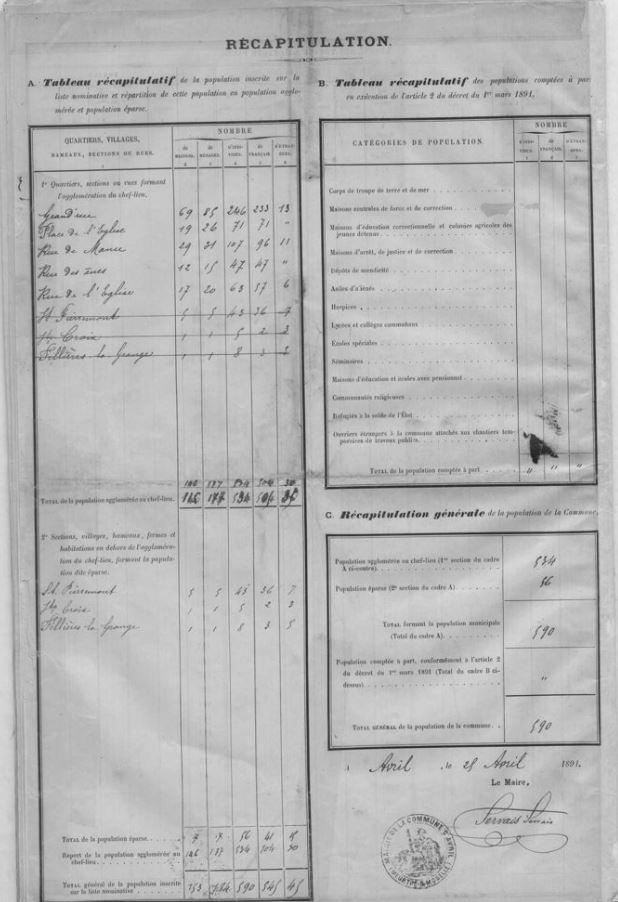 RÉCAPITULATION.
A. Tableau récapitulatif de la population inscrite sur la
liste nominative et répartition de cette population en population agglo-
mérée et population éparse.
QUARTIERS, VILLAGES,
HAMEAUX, SECTIONS OU RUES.
NOMBRE
de MAISONS. de MÉNAGES. d'INDI-VIDUS. de FRANÇAIS. d'ÉTRAN-GERS.
1° Quartiers, sections ou rues formant
l'agglomération du chef-lieu.
Grand'rue 69 85 246 233 13
Place de l'Eglise 19 26 71 71 "
Rue de Mance 29 31 107 96 11
Rue des 12 15 47 47 "
Rue de l'Eglise 17 20 63 57 6
St Pierremont 5 5 43 36 7
Ste Croix 1 1 5 2 3
Fillières la Grange 1 1 8 3
TOTAL de la population agglomérée au chef-lieu. 177 534 504
2° Sections, villages, hameaux, fermes et
habitations en dehors de l'aggloméra-
tion du chef-lieu, formant la popula-
tion dite éparse.
St. Pierremont 5 5 43 36 7
Ste Croix 1 1 5 2 3
Fillières la Grange 1 1 8 3 5
TOTAL de la population éparse. 7 7 56 41 15
Report de la population agglomérée au
chef-lieu. 146 177 534 504 30
TOTAL général de la population inscrite
sur la liste nominative 153 184 590 545 45
B. Tableau récapitulatif des populations comptées à part
en exécution de l'article 2 du décret du 1er mars 1891.
CATÉGORIES DE POPULATION.
NOMBRE
d'INDI-VIDUS. de FRANÇAIS. d'ÉTRAN-GERS.
Corps de troupe de terre et de mer
Maisons centrales de force et de correction
Maisons d'éducation correctionnelle et colonies agricoles des
jeunes détenus
Maisons d'arrêt, de justice et de correction
Dépôts de mendicité
Asiles d'aliénés
Hospices
Lycées et collèges communaux
Écoles spéciales
Séminaires
Maisons d'éducation et écoles avec pensionnat
Communautés religieuses
Réfugiés à la solde de l'État
Ouvriers étrangers à la commune attachés aux chantiers tem-
poraires de travaux publics.
TOTAL de la population comptée à part " " "
C. Récapitulation générale de la population de la Commune.
Population agglomérée au chef-lieu (1re section du cadre
A ci-contre). 534
Population éparse (2e section du cadre A). 56
TOTAL formant la population municipale
(Total du cadre A). 590
Population comptée à part, conformément à l'article 2
du décret du 1er mars 1891 (Total du cadre B ci-
dessus). "
TOTAL GÉNÉRAL de la population de la commune. 590
A Avril, le 25 Avril 1891.
Le Maire,
Servais
MAIRIE DE LA COMMUNE D'AVRIL
(MEURTHE & MOSELLE)